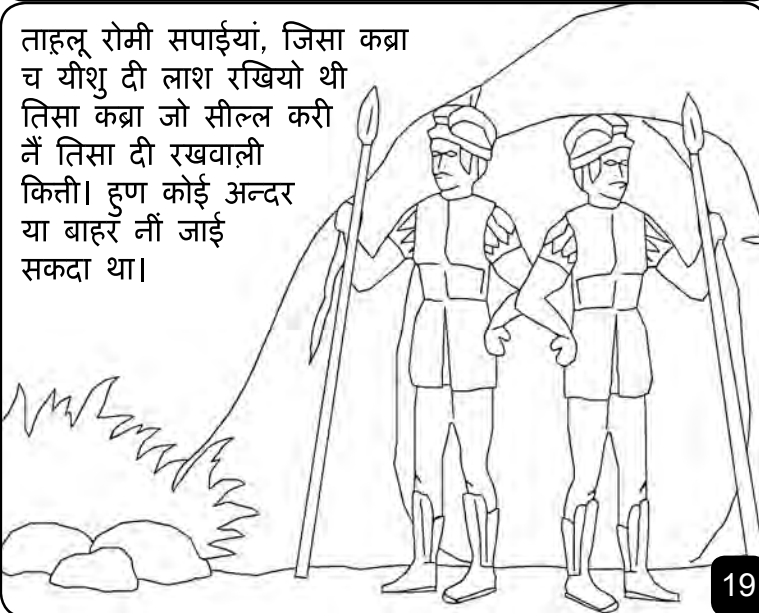 ताह़लू रोमी सपाईयां, जिसा कब्रा
च यीशु दी लाश रखियो थी
तिसा कब्रा जो सील्ल करी
नैं तिसा दी रखवाल़ी
कित्ती। हुण कोई अन्दर
या बाहर नीं जाई
सकदा था।
19